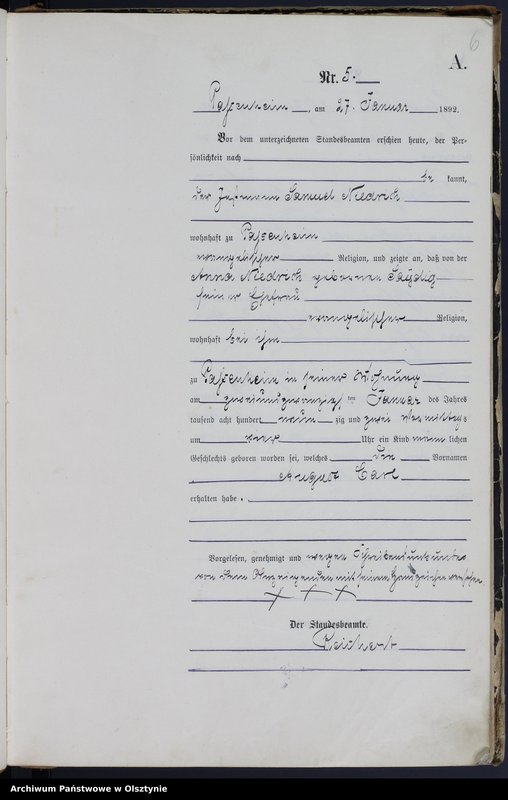 6
A.
Nr. 5.
Passenheim, am 27. Januar 1892.
Vor dem unterzeichneten Standesbeamten erschien heute, der Per-
sönlichkeit nach
be kannt,
der Samuel Niedrich
wohnhaft zu Passenheim
evangelischer Religion, und zeigte an, daß von der
Anna Niedrich geborenen
seiner Ehefrau
evangelischer Religion,
wohnhaft bei ihm
zu Passenheim in seiner Wohnung
am zweiundzwanzigsten Januar des Jahres
tausend acht hundert neun zig und zwei Vormittags
um vier Uhr ein Kind männ lichen
Geschlechts geboren worden sei, welches die Vornamen
August Carl
erhalten habe.
Vorgelesen, genehmigt und wegen Schreibensunkunde
von dem Anzeigenden mit seinem Handzeichen versehen
+ + +
Der Standesbeamte.
Reichert
Archiwum Państwowe w Olsztynie